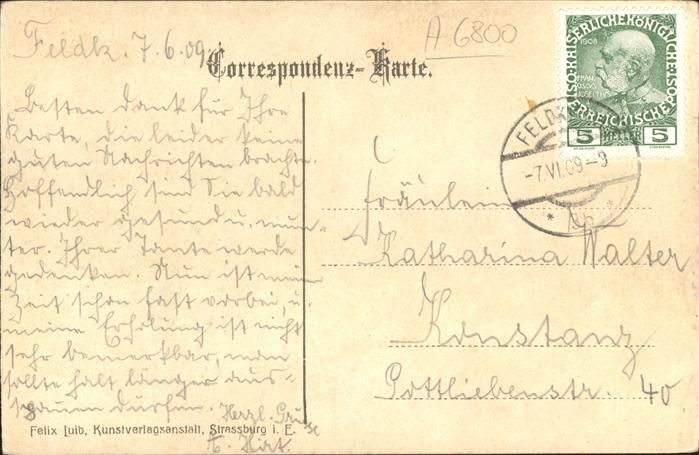 Feldk. 7.6.09.
A 6800
Correspondenz-Karte.
KAISERLICHE KÖNIGLICHE ÖSTERREICHISCHE POST
1908
5 HELLER 5
FELDK
-7.VI.09-9
* *
Besten Dank für Ihre
Karte, die leider keine
guten Nachrichten brachte.
Hoffentlich sind Sie bald
wieder gesund u. mun-
ter. Ihrer Tante werde
gedenken. Nun ist meine
Zeit schon fast vorbei, u.
meine Erholung ist nicht
sehr bemerkbar, man
sollte halt länger aus-
spauen dürfen. Herzl. Grüsse
Hirt.
Fräulein
Katharina Walter
Konstanz
Gottliebenstr. 40
Felix Luib, Kunstverlagsanstalt, Strassburg i. E.